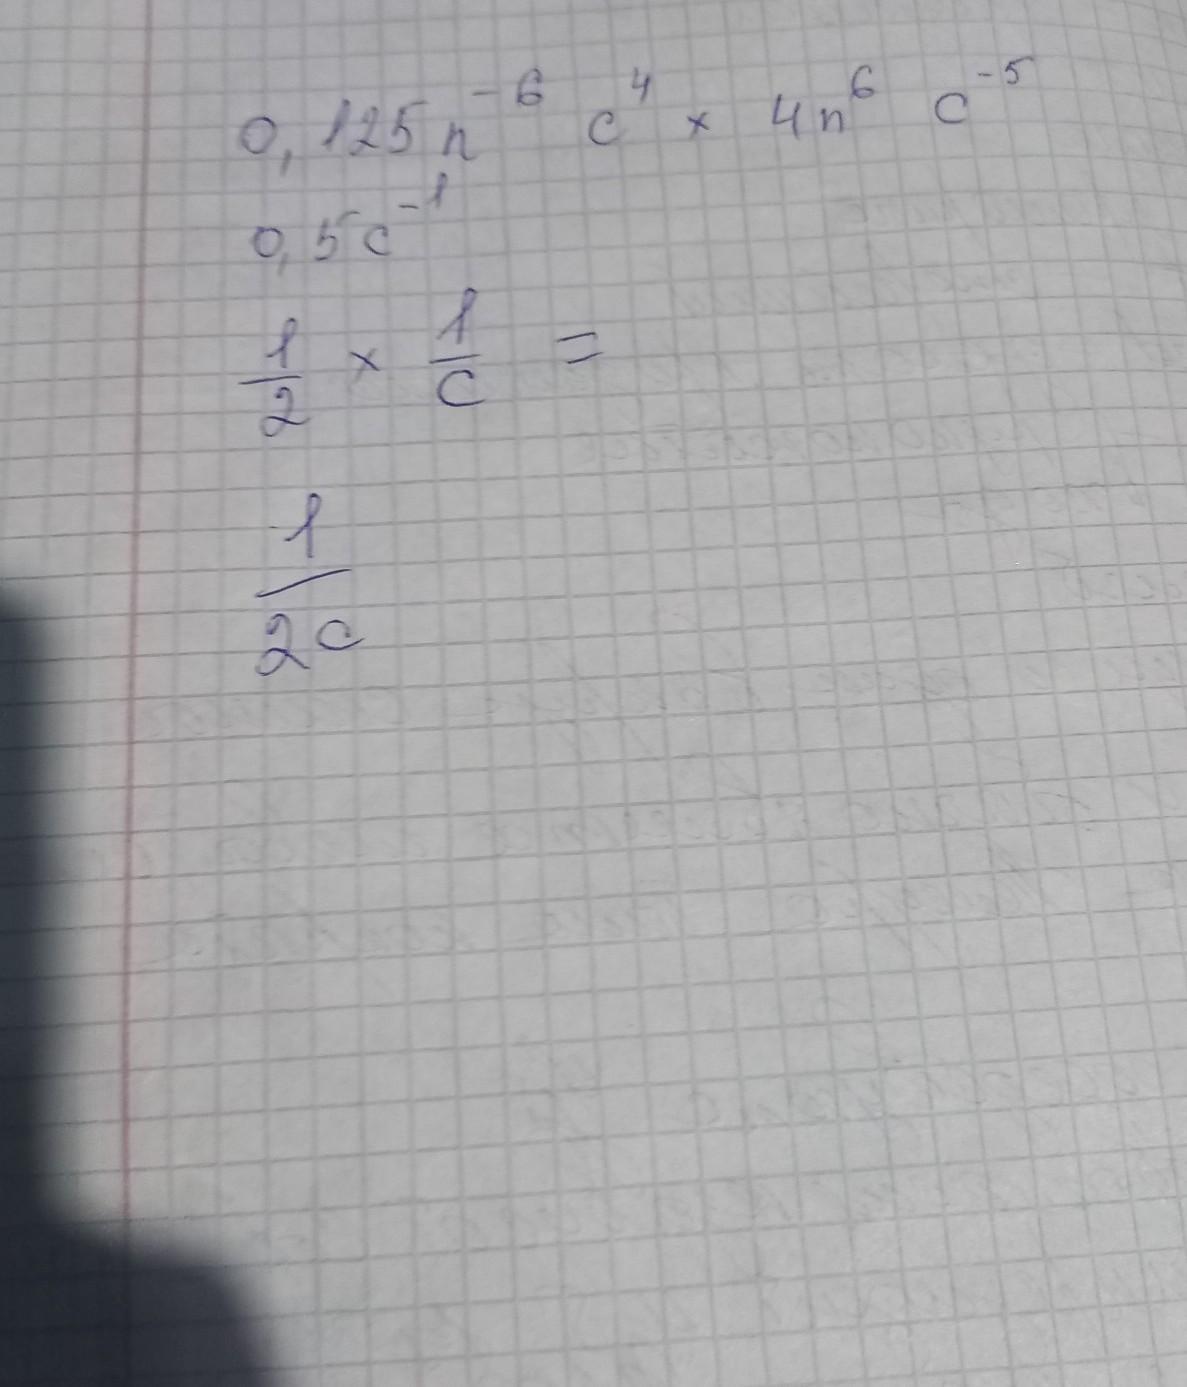 0,125n⁻⁶ c⁴ × 4n⁶ c⁻⁵
0,5c⁻¹
1/2 × 1/c =
1/2c